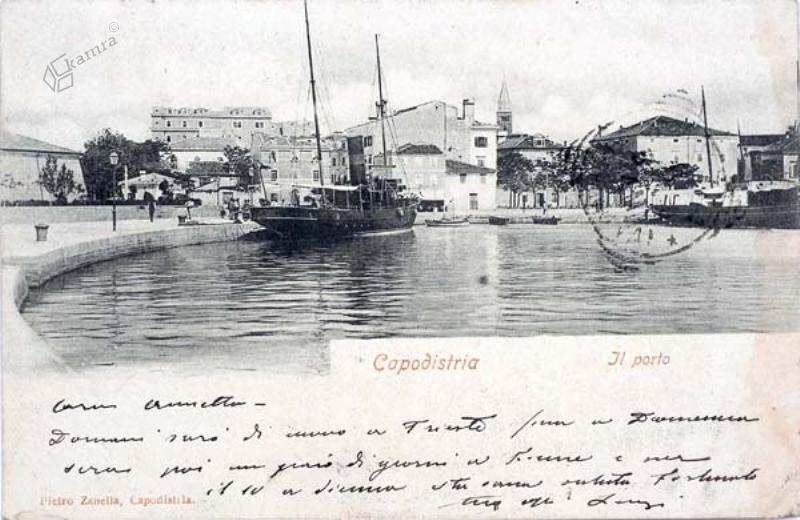 kamra
Capodistria Il porto
Cara Annetta -
Domani sarò di nuovo a Trieste fino a Domenica
sera poi un paio di giorni a Fiume e
il 10 a Vienna sta sana saluta
tuo
Pietro Zanella, Capodistria.